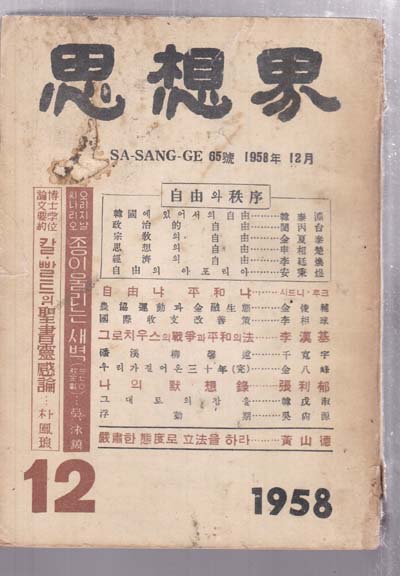 思想界
SA-SANG-GE 65號 1958年 12月
自由와 秩序
韓國에 있어서의 自由
政治的 自由
宗敎의 自由
思想의 自由
經濟의 自由
自由의 아포리아
自由냐 平和냐 시드니·후크
農協運動과 金融生態 金俊輔
國際收支改善策
그로치우스의 戰爭과 平和의 法 李漢基
千寬宇
우리가 걸어온 三十年(完) 金八峰
나의 默想錄 張利郁
그대로의 잠을
浮動期
嚴肅한 態度로 立法을 하라 黃山德
오리지날 씨나리오
종이울리는 새벽 吳泳鎭
博士學位論文要約
칼·빨트의 聖書靈感論 朴鳳琅
12
1958